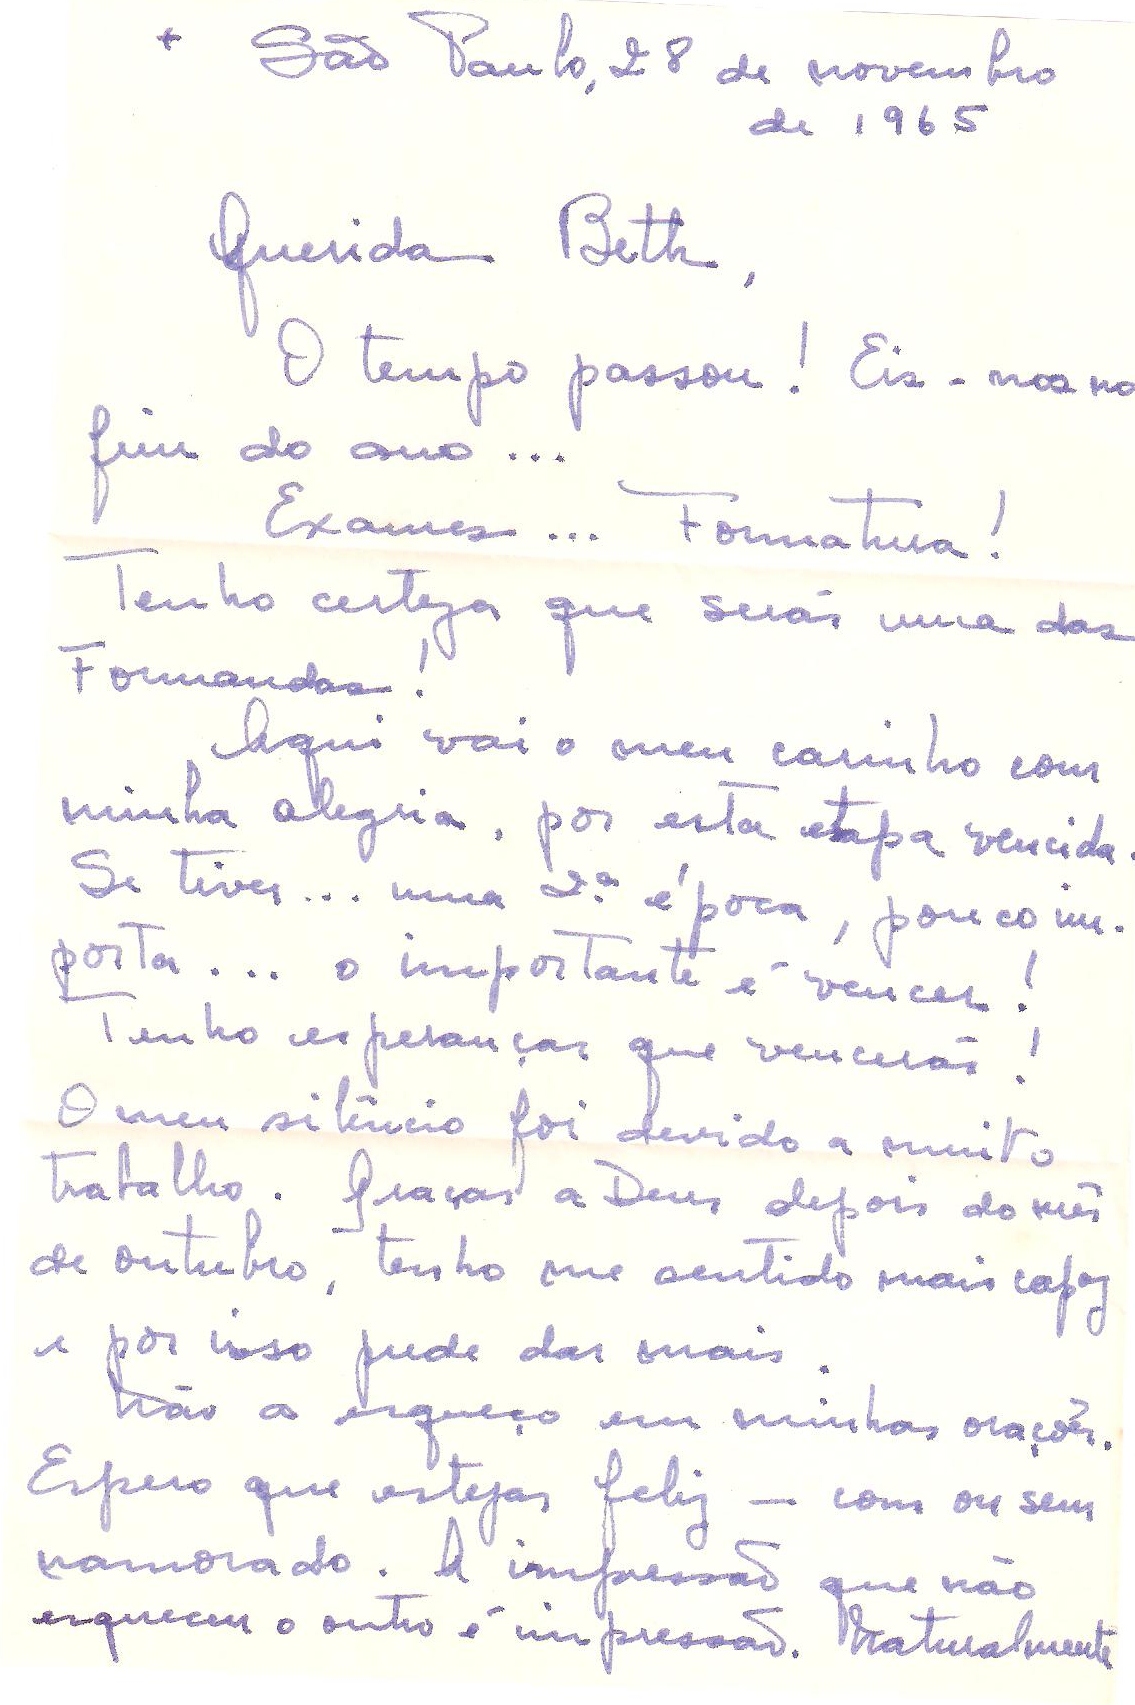 + São Paulo, 28 de novembro
de 1965
Querida Beth,
O tempo passou! Eis-nos no
fim do ano...
Exames... Formatura!
Tenho certeza que serás uma das
Formandas!
Aqui vai o meu carinho com
minha alegria, por esta etapa vencida.
Se tiver... uma 2ª época, pouco im-
porta.... o importante é vencer!
Tenho esperanças que vencerás!
O meu silêncio foi devido a muito
trabalho. Graças a Deus depois do mês
de outubro, tenho me sentido mais capaz
e por isso pude dar mais.
Não a esqueço em minhas orações.
Espero que estejas feliz — com ou sem
namorado. A impressão que não
esqueceu o outro é impressão. Naturalmente